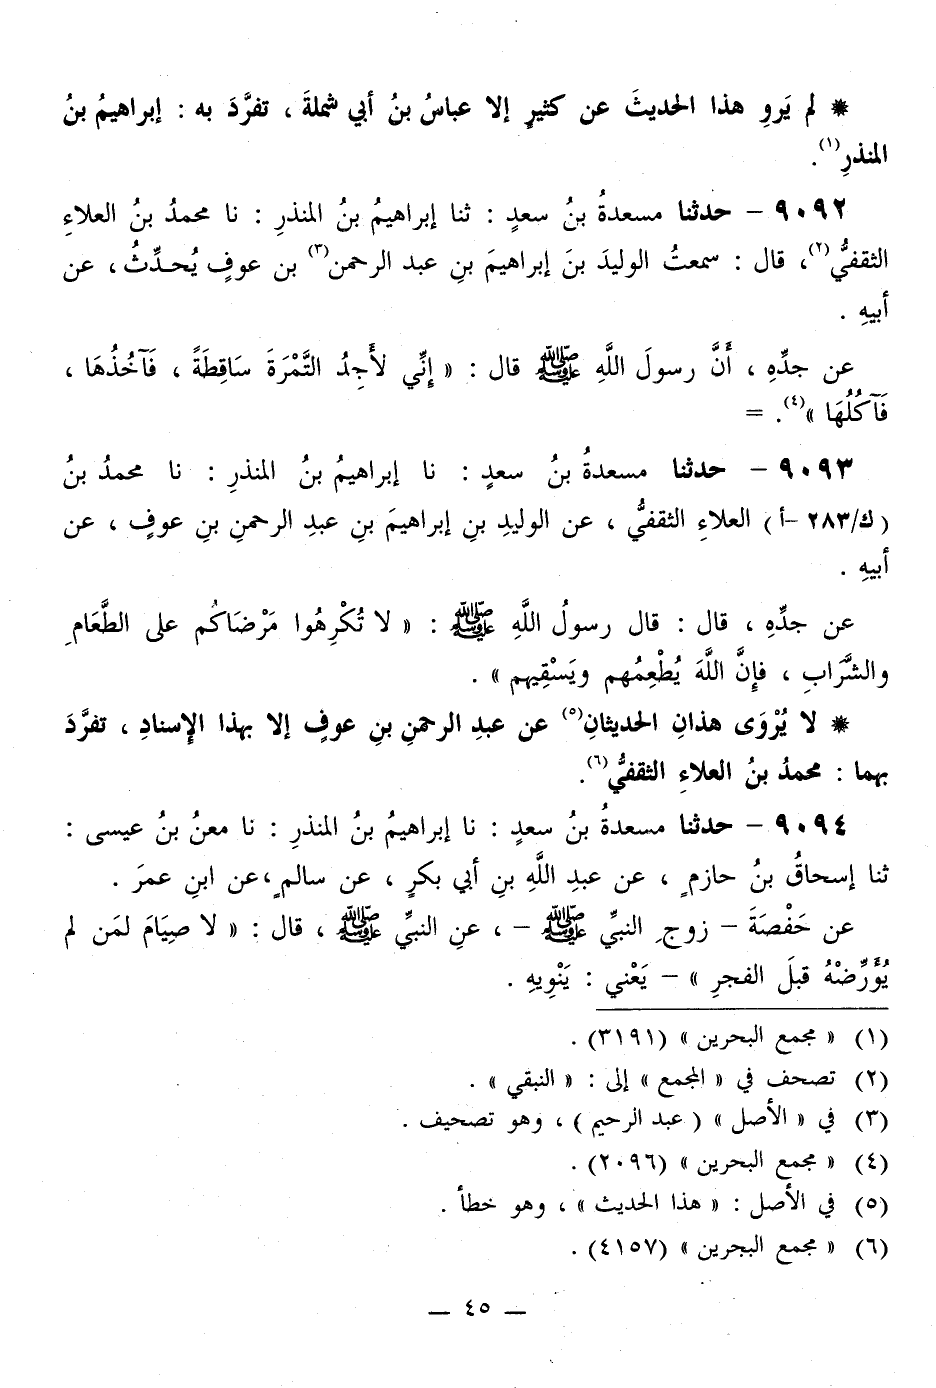 * لم يَروِ هذا الحديثَ عن كثيرٍ إلا عباسُ بنُ أبي شملةَ ، تفرَّدَ به : إبراهيمُ بنُ
المنذرِ(١).
٩٠٩٢ – حدثنا مسعدةُ بنُ سعدٍ : ثنا إبراهيمُ بنُ المنذرِ : نا محمدُ بنُ العلاءِ
الثقفيُّ(٢)، قال : سمعتُ الوليدَ بنَ إبراهيمَ بنِ عبد الرحمن(٣) بن عوفٍ يُحدِّثُ ، عن
أبيهِ .
عن جدِّهِ ، أَنَّ رسولَ اللَّهِ ﷺ قال : « إِنِّي لأَجِدُ التَّمْرَةَ سَاقِطَةً ، فَآخُذُهَا ،
فَآكُلُهَا »(٤). =
٩٠٩٣ – حدثنا مسعدةُ بنُ سعدٍ : نا إبراهيمُ بنُ المنذرِ : نا محمدُ بنُ
(ك/٢٨٣-أ) العلاءِ الثقفيُّ ، عن الوليدِ بنِ إبراهيمَ بنِ عبدِ الرحمنِ بنِ عوفٍ ، عن
أبيهِ .
عن جدِّهِ ، قال : قال رسولُ اللَّهِ ﷺ : « لا تُكْرِهُوا مَرْضَاكُم على الطَّعَامِ
والشَّرَابِ ، فإِنَّ اللَّهَ يُطْعِمُهم ويَسْقِيهم » .
* لا يُرْوَى هذانِ الحديثانِ(٥) عن عبدِ الرحمنِ بنِ عوفٍ إلا بهذا الإِسنادِ ، تفرَّدَ
بهما : محمدُ بنُ العلاءِ الثقفيُّ(٦).
٩٠٩٤ – حدثنا مسعدةُ بنُ سعدٍ : نا إبراهيمُ بنُ المنذرِ : نا معنُ بنُ عيسى :
ثنا إسحاقُ بنُ حازمٍ ، عن عبدِ اللَّهِ بنِ أبي بكرٍ ، عن سالمٍ ، عن ابنِ عمرَ .
عن حَفْصَةَ – زوجِ النبيِّ ﷺ – ، عنِ النبيِّ ﷺ ، قال : « لا صِيَامَ لمَن لم
يُؤَرِّضْهُ قبلَ الفجرِ » – يَعْني : يَنْوِيهِ .
(١) « مجمع البحرين » (٣١٩١) .
(٢) تصحف في « المجمع » إلى : « النبقي » .
(٣) في « الأصل » ( عبد الرحيم ) ، وهو تصحيف .
(٤) « مجمع البحرين » (٢٠٩٦) .
(٥) في الأصل : « هذا الحديث » ، وهو خطأ .
(٦) « مجمع البحرين » (٤١٥٧) .
– ٤٥ –